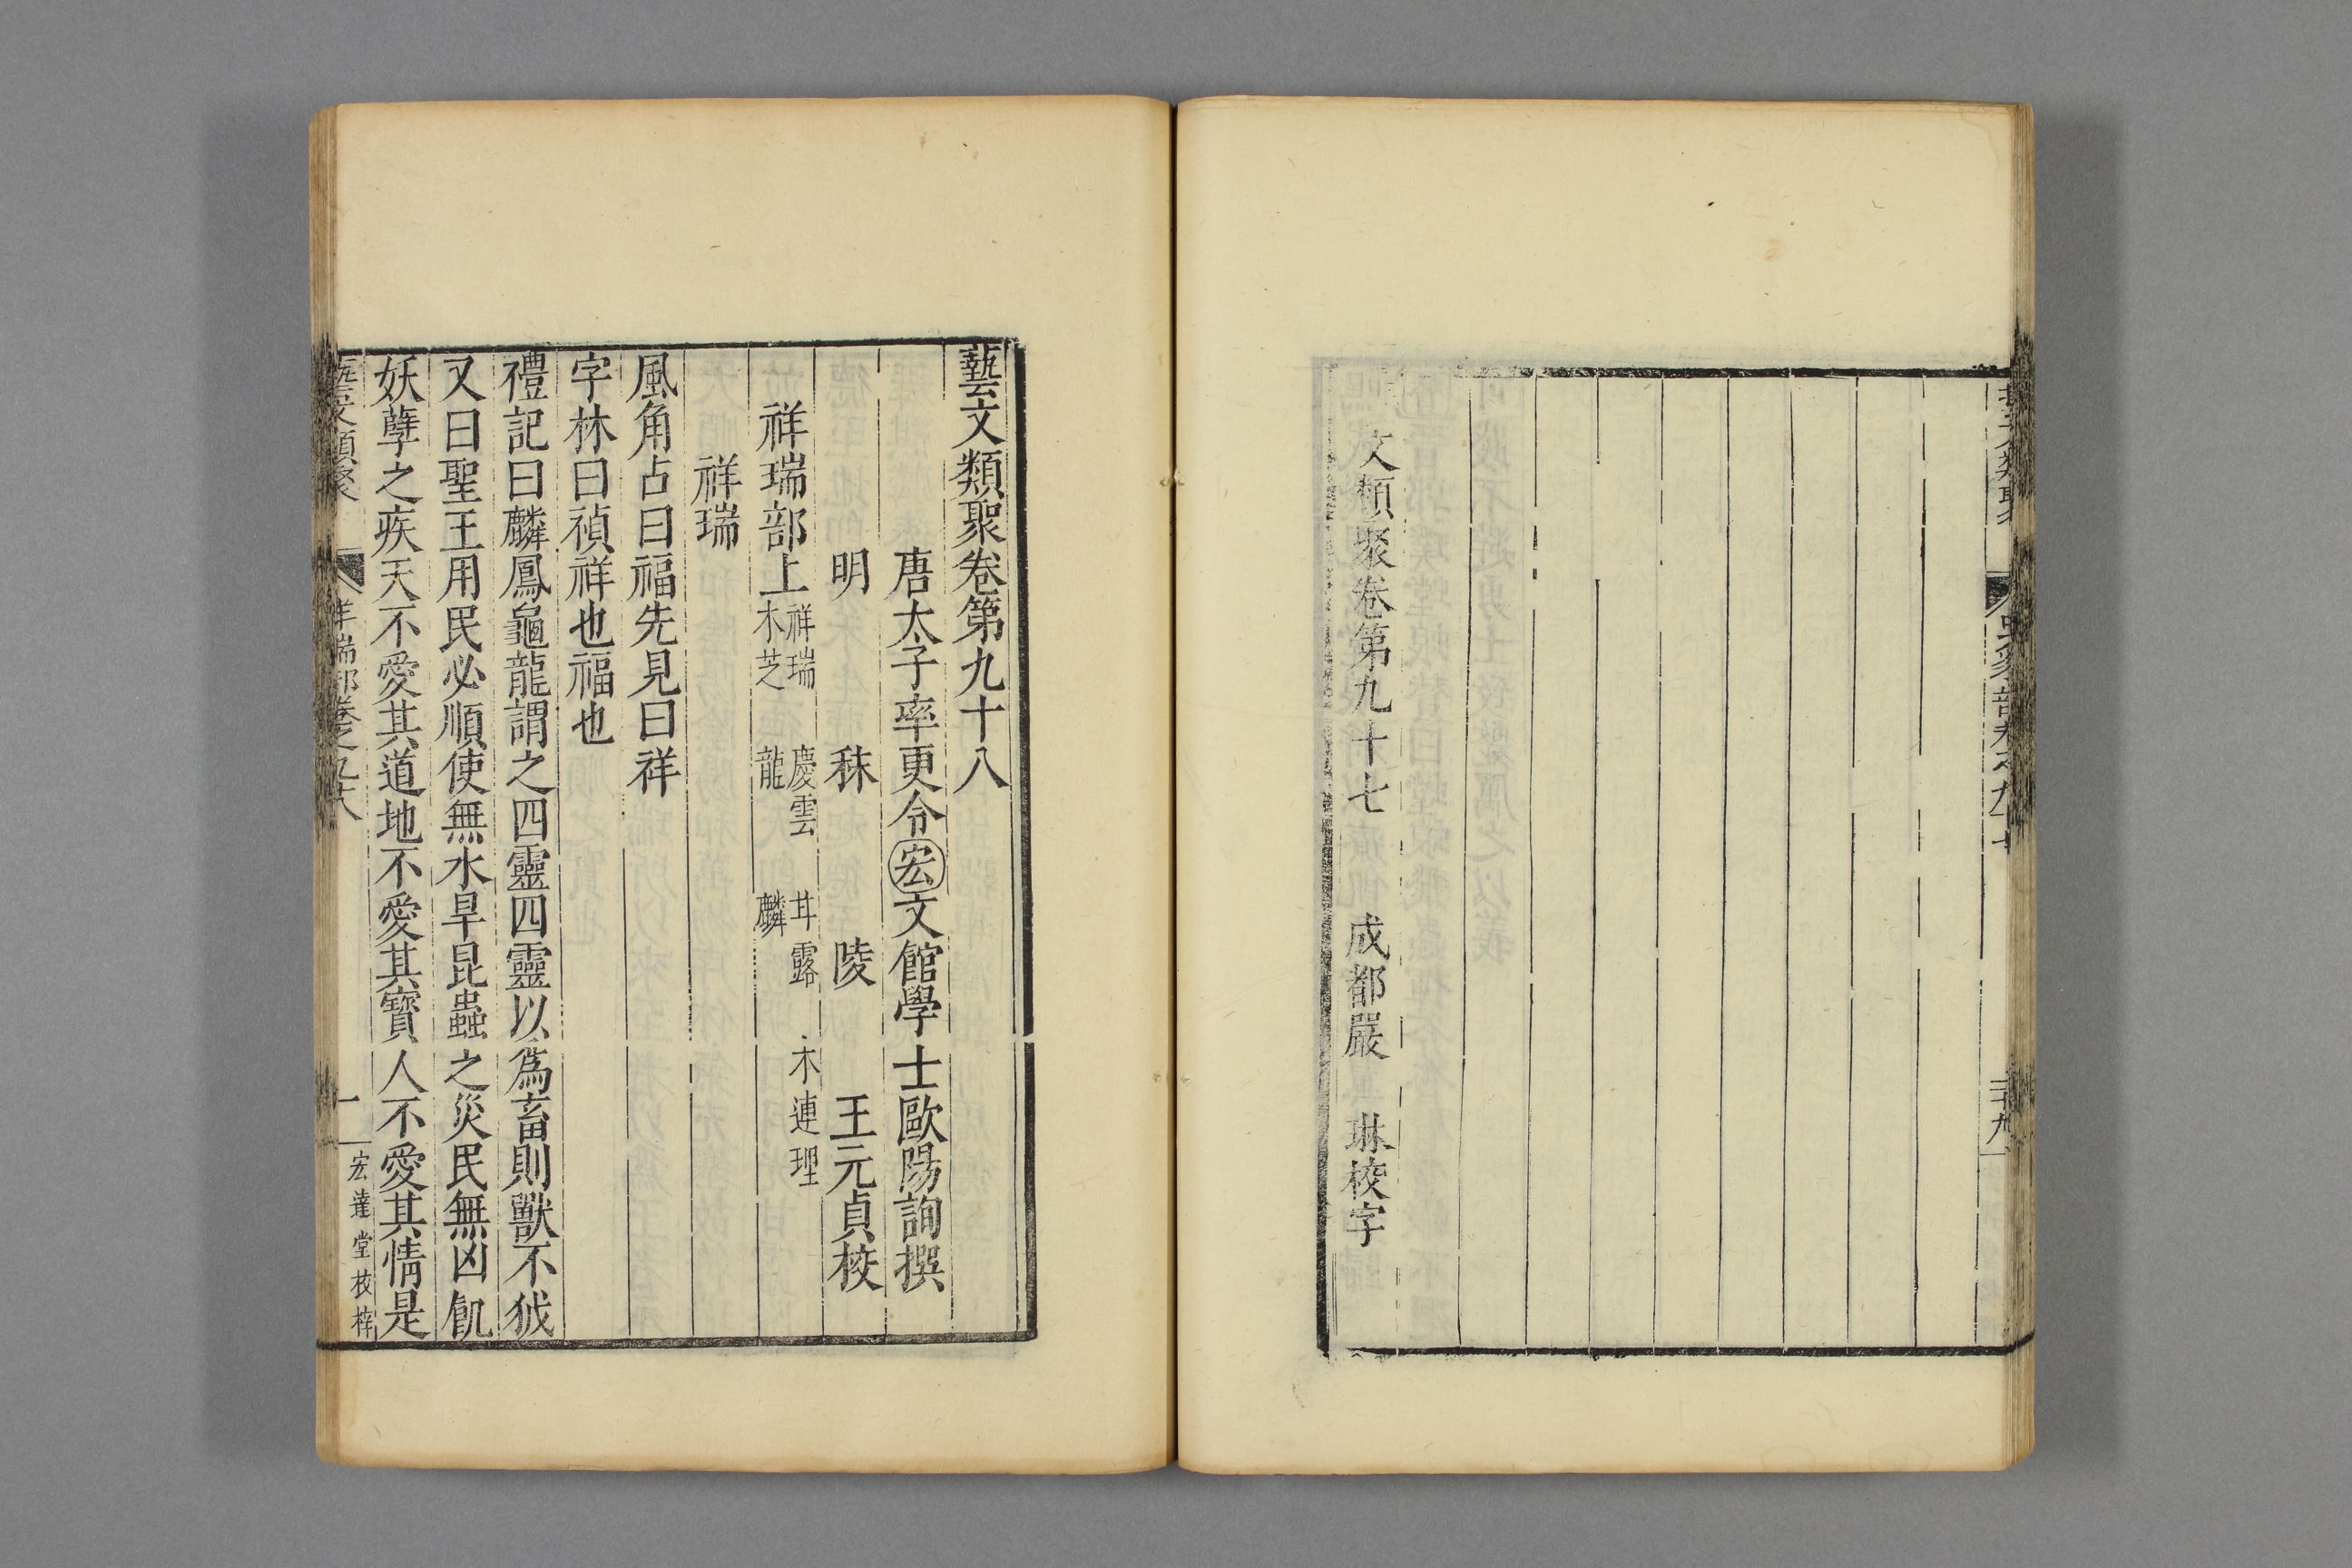 文類聚卷第九十七　成都嚴　琳校字
藝文類聚卷第九十八
唐太子率更令宏文館學士歐陽詢撰
明　秣　陵　王元貞校
祥瑞部上 祥瑞　慶雲　甘露　木連理
木芝　龍　麟
祥瑞
風角占曰福先見曰祥
字林曰禎祥也福也
禮記曰麟鳳龜龍謂之四靈四靈以爲畜則獸不狘
又曰聖王用民必順使無水旱昆蟲之災民無凶飢
妖孽之疾天不愛其道地不愛其寶人不愛其情是
藝文類聚　祥瑞部卷之九十八　一　宏達堂校梓